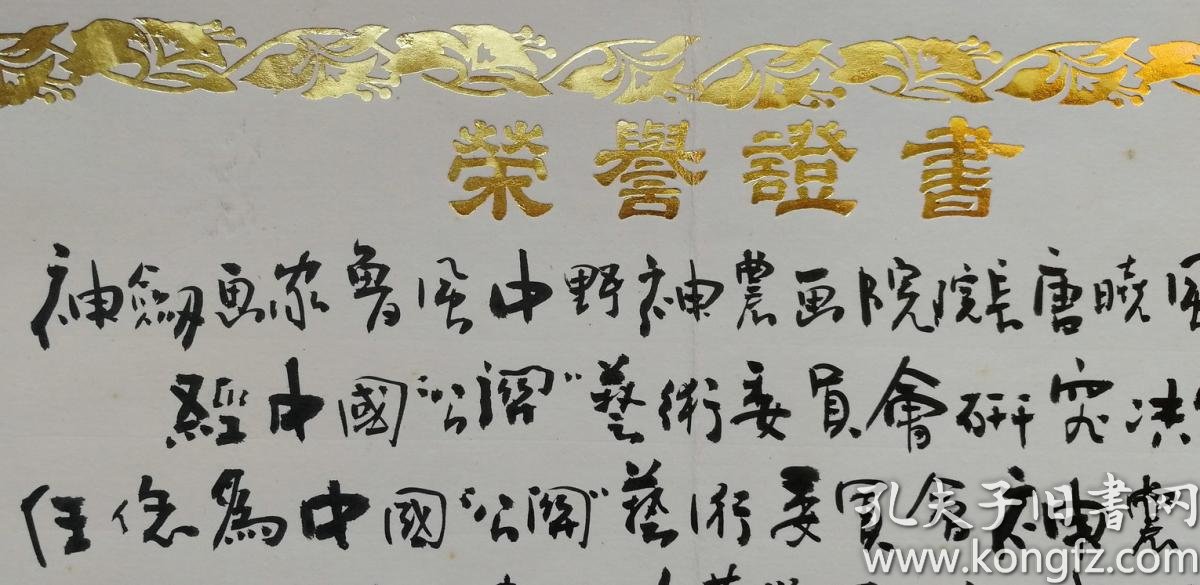 榮譽證書
神劍画家魯风中野神農画院院長唐曉
經中國"公關"藝術委員會研究決
任您爲中國"公關"藝術委員會神農
孔夫子旧书网
www.kongfz.com